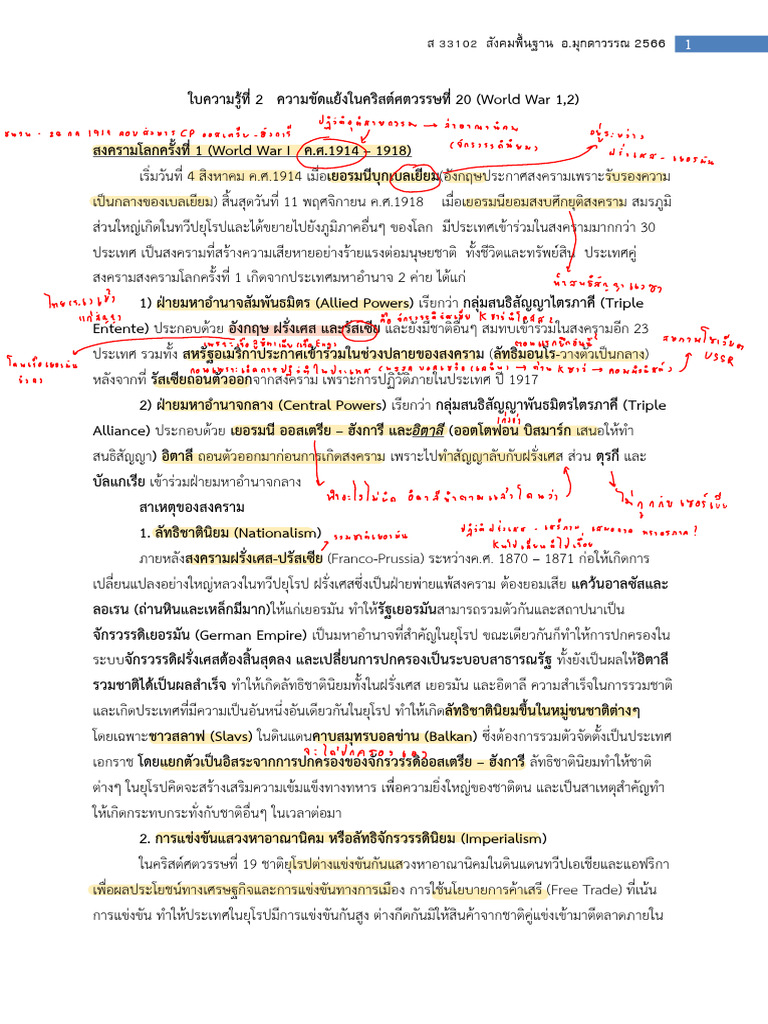 ส 33102 สังคมพื้นฐาน อ.มุกดาวรรณ 2566 1
ใบความรู้ที่ 2 ความขัดแย้งในคริสต์ศตวรรษที่ 20 (World War 1,2)
ปฏิวัติอุตสาหกรรม → ล่าอาณานิคม
(จักรวรรดินิยม)
อยู่ระหว่าง
ฝรั่งเศส - เยอรมัน
สงครามโลกครั้งที่ 1 (World War I ค.ศ.1914 – 1918)
เริ่มวันที่ 4 สิงหาคม ค.ศ.1914 เมื่อเยอรมนีบุกเบลเยียม(อังกฤษประกาศสงครามเพราะรับรองความ
เป็นกลางของเบลเยียม) สิ้นสุดวันที่ 11 พฤศจิกายน ค.ศ.1918 เมื่อเยอรมนียอมสงบศึกยุติสงคราม สมรภูมิ
ส่วนใหญ่เกิดในทวีปยุโรปและได้ขยายไปยังภูมิภาคอื่นๆ ของโลก มีประเทศเข้าร่วมในสงครามมากกว่า 30
ประเทศ เป็นสงครามที่สร้างความเสียหายอย่างร้ายแรงต่อมนุษยชาติ ทั้งชีวิตและทรัพย์สิน ประเทศคู่
สงครามสงครามโลกครั้งที่ 1 เกิดจากประเทศมหาอำนาจ 2 ค่าย ได้แก่
1) ฝ่ายมหาอำนาจสัมพันธมิตร (Allied Powers) เรียกว่า กลุ่มสนธิสัญญาไตรภาคี (Triple
Entente) ประกอบด้วย อังกฤษ ฝรั่งเศส และรัสเซีย และยังมีชาติอื่นๆ สมทบเข้าร่วมในสงครามอีก 23
สหภาพโซเวียต
USSR
ประเทศ รวมทั้ง สหรัฐอเมริกาประกาศเข้าร่วมในช่วงปลายของสงคราม (ลัทธิมอนโร-วางตัวเป็นกลาง)
หลังจากที่ รัสเซียถอนตัวออกจากสงคราม เพราะการปฏิวัติภายในประเทศ ปี 1917
2) ฝ่ายมหาอำนาจกลาง (Central Powers) เรียกว่า กลุ่มสนธิสัญญาพันธมิตรไตรภาคี (Triple
Alliance) ประกอบด้วย เยอรมนี ออสเตรีย – ฮังการี และอิตาลี (ออตโตฟอน บิสมาร์ก เสนอให้ทำ
สนธิสัญญา) อิตาลี ถอนตัวออกมาก่อนการเกิดสงคราม เพราะไปทำสัญญาลับกับฝรั่งเศส ส่วน ตุรกี และ
บัลแกเรีย เข้าร่วมฝ่ายมหาอำนาจกลาง
ไม่ถูกกับเซอร์เบีย
สาเหตุของสงคราม
1. ลัทธิชาตินิยม (Nationalism)
รวมชาติเยอรมัน
ภายหลังสงครามฝรั่งเศส-ปรัสเซีย (Franco-Prussia) ระหว่างค.ศ. 1870 – 1871 ก่อให้เกิดการ
เปลี่ยนแปลงอย่างใหญ่หลวงในทวีปยุโรป ฝรั่งเศสซึ่งเป็นฝ่ายพ่ายแพ้สงคราม ต้องยอมเสีย แคว้นอาลซัสและ
ลอเรน (ถ่านหินและเหล็กมีมาก)ให้แก่เยอรมัน ทำให้รัฐเยอรมันสามารถรวมตัวกันและสถาปนาเป็น
จักรวรรดิเยอรมัน (German Empire) เป็นมหาอำนาจที่สำคัญในยุโรป ขณะเดียวกันก็ทำให้การปกครองใน
ระบบจักรวรรดิฝรั่งเศสต้องสิ้นสุดลง และเปลี่ยนการปกครองเป็นระบอบสาธารณรัฐ ทั้งยังเป็นผลให้อิตาลี
รวมชาติได้เป็นผลสำเร็จ ทำให้เกิดลัทธิชาตินิยมทั้งในฝรั่งเศส เยอรมัน และอิตาลี ความสำเร็จในการรวมชาติ
และเกิดประเทศที่มีความเป็นอันหนึ่งอันเดียวกันในยุโรป ทำให้เกิดลัทธิชาตินิยมขึ้นในหมู่ชนชาติต่างๆ
โดยเฉพาะชาวสลาฟ (Slavs) ในดินแดนคาบสมุทรบอลข่าน (Balkan) ซึ่งต้องการรวมตัวจัดตั้งเป็นประเทศ
จะได้ปกครองเอง
เอกราช โดยแยกตัวเป็นอิสระจากการปกครองของจักรวรรดิออสเตรีย – ฮังการี ลัทธิชาตินิยมทำให้ชาติ
ต่างๆ ในยุโรปคิดจะสร้างเสริมความเข้มแข็งทางทหาร เพื่อความยิ่งใหญ่ของชาติตน และเป็นสาเหตุสำคัญทำ
ให้เกิดกระทบกระทั่งกับชาติอื่นๆ ในเวลาต่อมา
2. การแข่งขันแสวงหาอาณานิคม หรือลัทธิจักรวรรดินิยม (Imperialism)
ในคริสต์ศตวรรษที่ 19 ชาติยุโรปต่างแข่งขันกันแสวงหาอาณานิคมในดินแดนทวีปเอเชียและแอฟริกา
เพื่อผลประโยชน์ทางเศรษฐกิจและการแข่งขันทางการเมือง การใช้นโยบายการค้าเสรี (Free Trade) ที่เน้น
การแข่งขัน ทำให้ประเทศในยุโรปมีการแข่งขันกันสูง ต่างกีดกันมิให้สินค้าจากชาติคู่แข่งเข้ามาตีตลาดภายใน